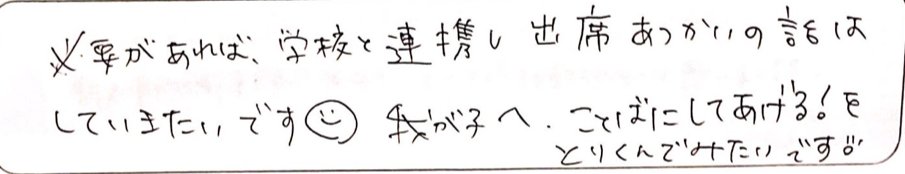 必要があれば、学校と連携し 出席あつかいの話は
していきたいです☺ 我が子へ、ことばにしてあげる!を
とりくんでみたいです!!